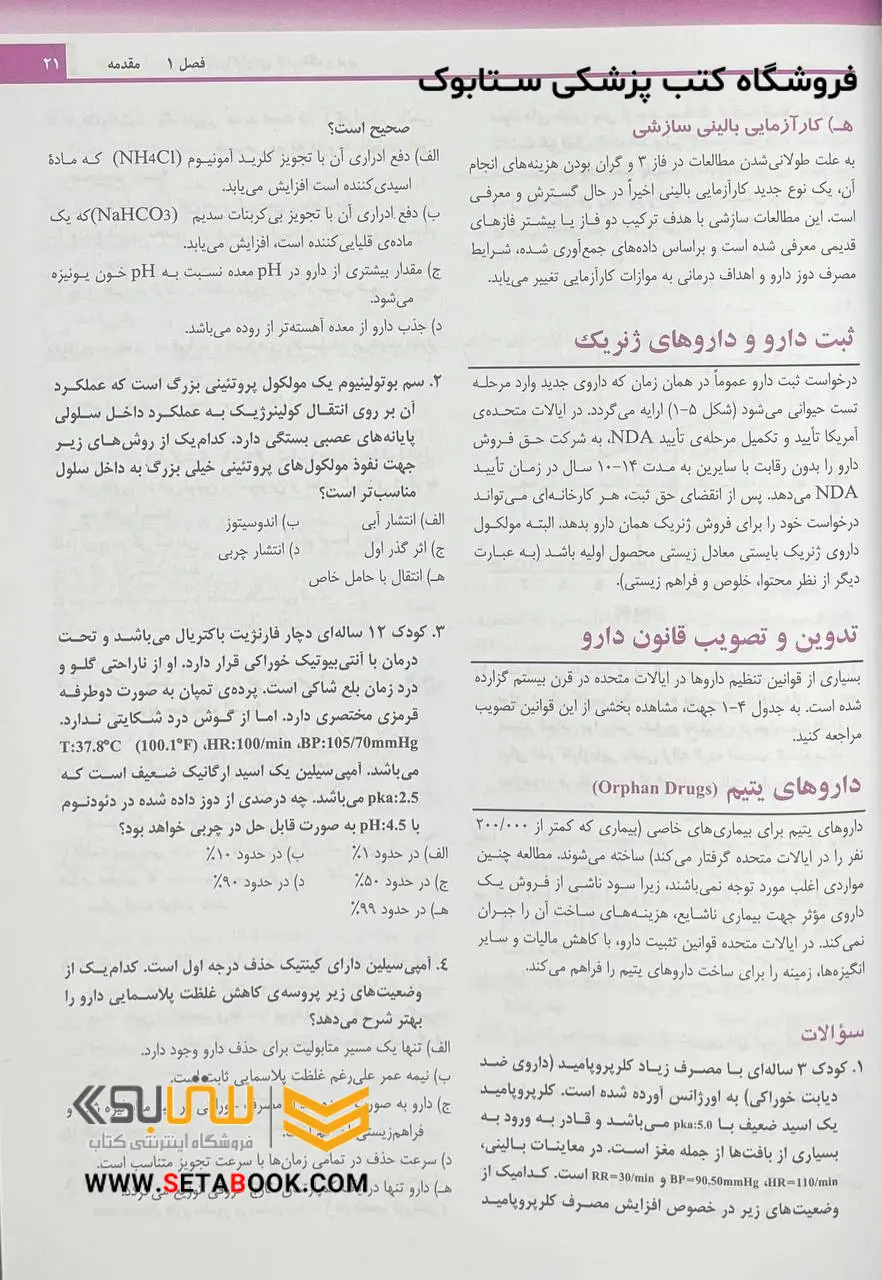 فصل ۱ مقدمه ۲۱
فروشگاه کتب پزشکی ستابوک
هـ) کارآزمایی بالینی سازشی
به علت طولانی‌شدن مطالعات در فاز ۳ و گران بودن هزینه‌های انجام
آن، یک نوع جدید کارآزمایی بالینی اخیراً در حال گسترش و معرفی
است. این مطالعات سازشی با هدف ترکیب دو فاز یا بیشتر فازهای
قدیمی معرفی شده است و براساس داده‌های جمع‌آوری شده، شرایط
مصرف دوز دارو و اهداف درمانی به موازات کارآزمایی تغییر می‌یابد.
ثبت دارو و داروهای ژنریک
درخواست ثبت دارو عموماً در همان زمان که داروی جدید وارد مرحله
تست حیوانی می‌شود (شکل ۵-۱) ارایه می‌گردد. در ایالات متحده‌ی
آمریکا تأیید و تکمیل مرحله‌ی تأیید NDA، به شرکت حق فروش
دارو را بدون رقابت با سایرین به مدت ۱۴-۱۰ سال در زمان تأیید
NDA می‌دهد. پس از انقضای حق ثبت، هر کارخانه‌ای می‌تواند
درخواست خود را برای فروش ژنریک همان دارو بدهد. البته مولکول
داروی ژنریک بایستی معادل زیستی محصول اولیه باشد (به عبارت
دیگر از نظر محتوا، خلوص و فراهم زیستی).
تدوین و تصویب قانون دارو
بسیاری از قوانین تنظیم داروها در ایالات متحده در قرن بیستم گزارده
شده است. به جدول ۴-۱ جهت، مشاهده بخشی از این قوانین تصویب
مراجعه کنید.
داروهای یتیم (Orphan Drugs)
داروهای یتیم برای بیماری‌های خاصی (بیماری که کمتر از ۲۰۰/۰۰۰
نفر را در ایالات متحده گرفتار می‌کند) ساخته می‌شوند. مطالعه چنین
مواردی اغلب مورد توجه نمی‌باشند، زیرا سود ناشی از فروش یک
داروی مؤثر جهت بیماری ناشایع، هزینه‌های ساخت آن را جبران
نمی‌کند. در ایالات متحده قوانین تثبیت دارو، با کاهش مالیات و سایر
انگیزه‌ها، زمینه را برای ساخت داروهای یتیم را فراهم می‌کند.
سؤالات
۱. کودک ۳ ساله‌ای با مصرف زیاد کلرپروپامید (داروی ضد
دیابت خوراکی) به اورژانس آورده شده است. کلرپروپامید
یک اسید ضعیف با pka:5.0 می‌باشد و قادر به ورود به
بسیاری از بافت‌ها از جمله مغز است. در معاینات بالینی،
BP=90.50mmHg ،HR=110/min و RR=30/min است. کدامیک از
وضعیت‌های زیر در خصوص افزایش مصرف کلرپروپامید
صحیح است؟
الف) دفع ادراری آن با تجویز کلرید آمونیوم (NH4Cl) که مادهٔ
اسیدی‌کننده است افزایش می‌یابد.
ب) دفع ادراری آن با تجویز بی‌کربنات سدیم (NaHCO3)که یک
ماده‌ی قلیایی‌کننده است، افزایش می‌یابد.
ج) مقدار بیشتری از دارو در pH معده نسبت به pH خون یونیزه
می‌شود.
د) جذب دارو از معده آهسته‌تر از روده می‌باشد.
۲. سم بوتولینیوم یک مولکول پروتئینی بزرگ است که عملکرد
آن بر روی انتقال کولینرژیک به عملکرد داخل سلولی
پایانه‌های عصبی بستگی دارد. کدام‌یک از روش‌های زیر
جهت نفوذ مولکول‌های پروتئینی خیلی بزرگ به داخل سلول
مناسب‌تر است؟
الف) انتشار آبی ب) اندوسیتوز
ج) اثر گذر اول د) انتشار چربی
هـ) انتقال با حامل خاص
۳. کودک ۱۲ ساله‌ای دچار فارنژیت باکتریال می‌باشد و تحت
درمان با آنتی‌بیوتیک خوراکی قرار دارد. او از ناراحتی گلو و
درد زمان بلع شاکی است. پرده‌ی تمپان به صورت دوطرفه
قرمزی مختصری دارد. اما از گوش درد شکایتی ندارد.
T:37.8°C (100.1°F) ،HR:100/min ،BP:105/70mmHg
می‌باشد. آمپی‌سیلین یک اسید ارگانیک ضعیف است که
pka:2.5 می‌باشد. چه درصدی از دوز داده شده در دئودنوم
با pH:4.5 به صورت قابل حل در چربی خواهد بود؟
الف) در حدود ۱٪ ب) در حدود ۱۰٪
ج) در حدود ۵۰٪ د) در حدود ۹۰٪
هـ) در حدود ۹۹٪
۴. آمپی‌سیلین دارای کینتیک حذف درجه اول است. کدام‌یک از
وضعیت‌های زیر پروسه‌ی کاهش غلظت پلاسمایی دارو را
بهتر شرح می‌دهد؟
الف) تنها یک مسیر متابولیت برای حذف دارو وجود دارد.
ب) نیمه عمر علی‌رغم غلظت پلاسمایی ثابت است.
ج) دارو به صورت مصرف خوراکی و
فراهم‌زیستی
د) سرعت حذف در تمامی زمان‌ها با سرعت تجویز متناسب است.
هـ) دارو تنها در
ستابوک
فروشگاه اینترنتی کتاب
WWW.SETABOOK.COM